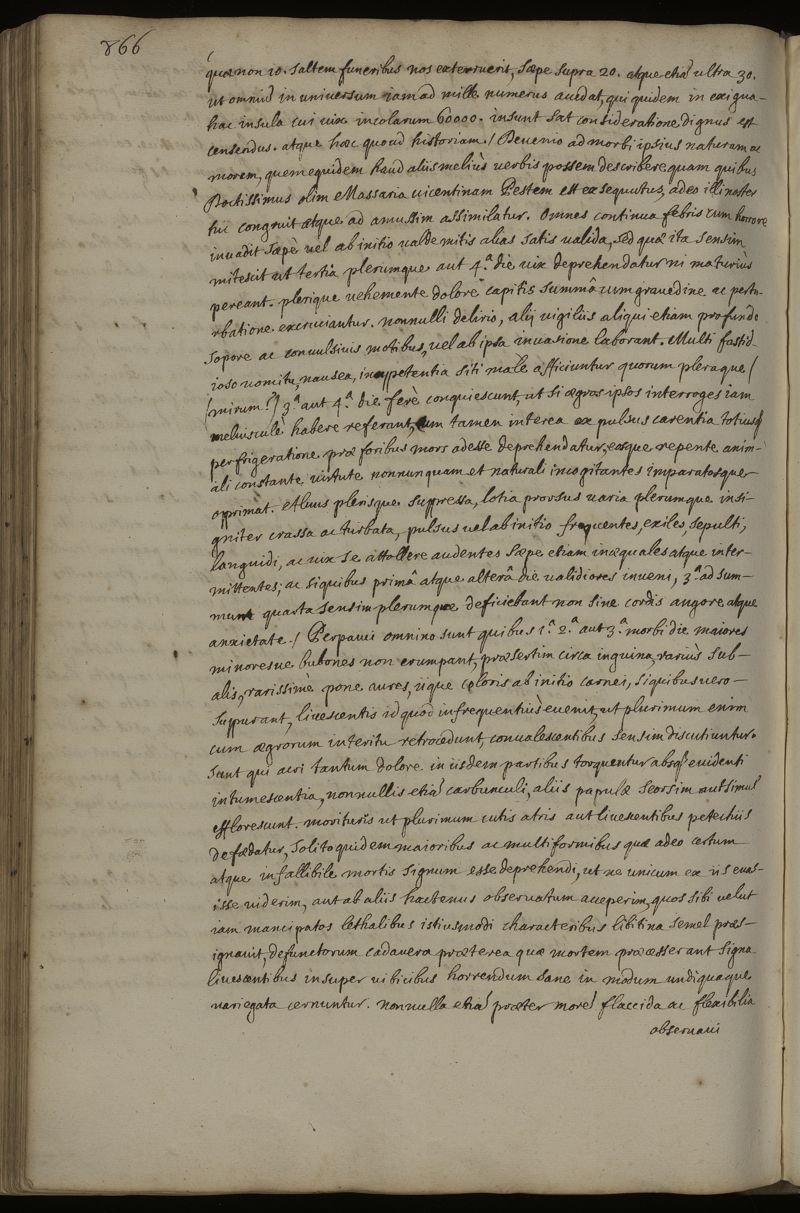 866
quæ non 10. saltem funeribus nos exterruerit, sæpe supra 20. atque etiã ultra 30.
ut omniũ in universum iam ad mille numerus accedat, qui quidem in exigua-
hac insula cui vix incolarum 60000. insunt sat consideratione dignus est
censendus. atque hæc quoad historiam./ Devenio ad morbi ipsius naturam ac
morem, quem equidem haud aliis melius verbis possem describere quam quibus
Doctissimus olim Massaria vicentinam Pestem est exsequutus, adeo illi noster
hic congruit atque ad amussim assimilatur. Omnes continua febris cum horrore
invadit sæpè vel ab initio valde mitis alias satis valida, sed quæ ita sensim
mitescit ut tertia plerumque aut 4.ª die vix deprehendatur ni maturiùs
pereant. plerique vehemente dolore capitis summa cum gravedine ac pertu-
rbatione excruciantur. nonnulli delirio, alij vigiliis aliqui etiam profundo
sopore ac convulsivis motibus, vel ab ipsa invasione laborant. Multi fastid-
ioso vomitu, nausea, inappetentia siti malè afficiuntur quorum pleraque (
(mirum!) 3.ª aut 4.ª die ferè conquiescunt, ut si ægros ipsos interroges iam
meliusculè habere referant, cum tamen interea ex pulsus carentia totiusq
perfrigeratione præ foribus mors adesse deprehendatur, eosque repente anim-
ali constante virtute nonnunquam et naturali incogitantes imparatosque-
opprimat. Alvus plerisque suppressa, lotia prorsus varia plerumque insi-
gniter crassa ac turbata, pulsus vel ab initio frequentes, exiles, sepulti,
languidi, ac vix se attollere audentes sæpe etiam inæquales atque inter-
mittentes; ac siquibus primâ atque alterâ die validiores inveni, 3.ª ad sum-
mum quarta sensim plerumque deficiebant non sine cordis angore atque
anxietate./ Perpauci omnino sunt quibus 1.ª 2.ª aut 3.ª morbi die maiores
minoresve bubones non erumpant, præsertim circa inguina, rariùs sub-
alis, rarissimè pone aures, iique coloris ab initio carnei, siquibus vero-
suppurant, livescentis id quod infrequentiùs evenit, ut plurimum enim
cum ægrorum interitu retrocedunt, convalescentibus sensim discutiuntur.
sunt qui acri tantum dolore in iisdem partibus torquentur absq evidenti
intumescentia, nonnullis etiã carbunculi, aliis papulæ seorsim aut simul
efflorescunt. morituris ut plurimum cutis atris aut livescentibus petechiis
defædatur, solito quidem maioribus ac multiformibus quæ adeo certum
atque infallibile mortis signum esse deprehendi, ut ne unicum ex iis evas-
isse viderim, aut ab aliis hactenus observatum acceperim, quos sibi velut
iam mancipatos lethalibus istiusmodi characteribus libitina semel præs-
ignavit, defunctorum cadavera præterea quæ mortem præcesserant signa
livescentibus insuper vibicibus horrendum sane in modum undiquaque
variegata cernuntur. nonnulla etiã præter morẽ flaccida ac flexibilia
observavi